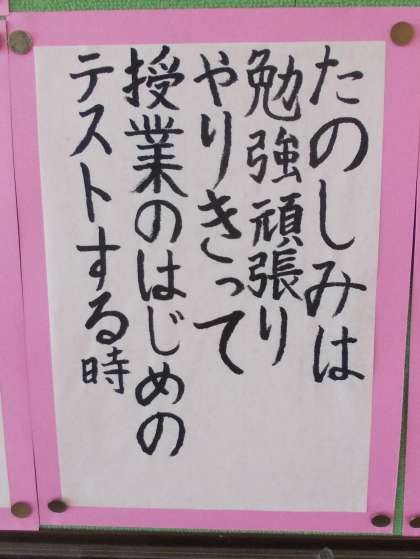 たのしみは
勉強頑張り
やりきって
授業のはじめの
テストする時